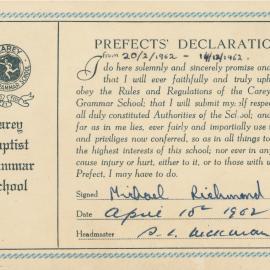 CAREY
GRAMMAR SCHOOL
arey
aptist
rammar
chool
PREFECTS' DECLARATION
from 20/2/1962 - 14/12/1962.
do here solemnly and sincerely promise and
that I will ever faithfully and truly uph
obey the Rules and Regulations of the Carey
Grammar School; that I will submit myself
all duly constituted Authorities of the School; and
far as in me lies, ever fairly and impartially use t
and privileges now conferred, so as in all things to
the highest interests of this school; nor ever in any
cause injury or hurt, either to it, or to those with u
Prefect, I may have to do.
Signed Michael Richmond
Date April 10th 1962
Headmaster